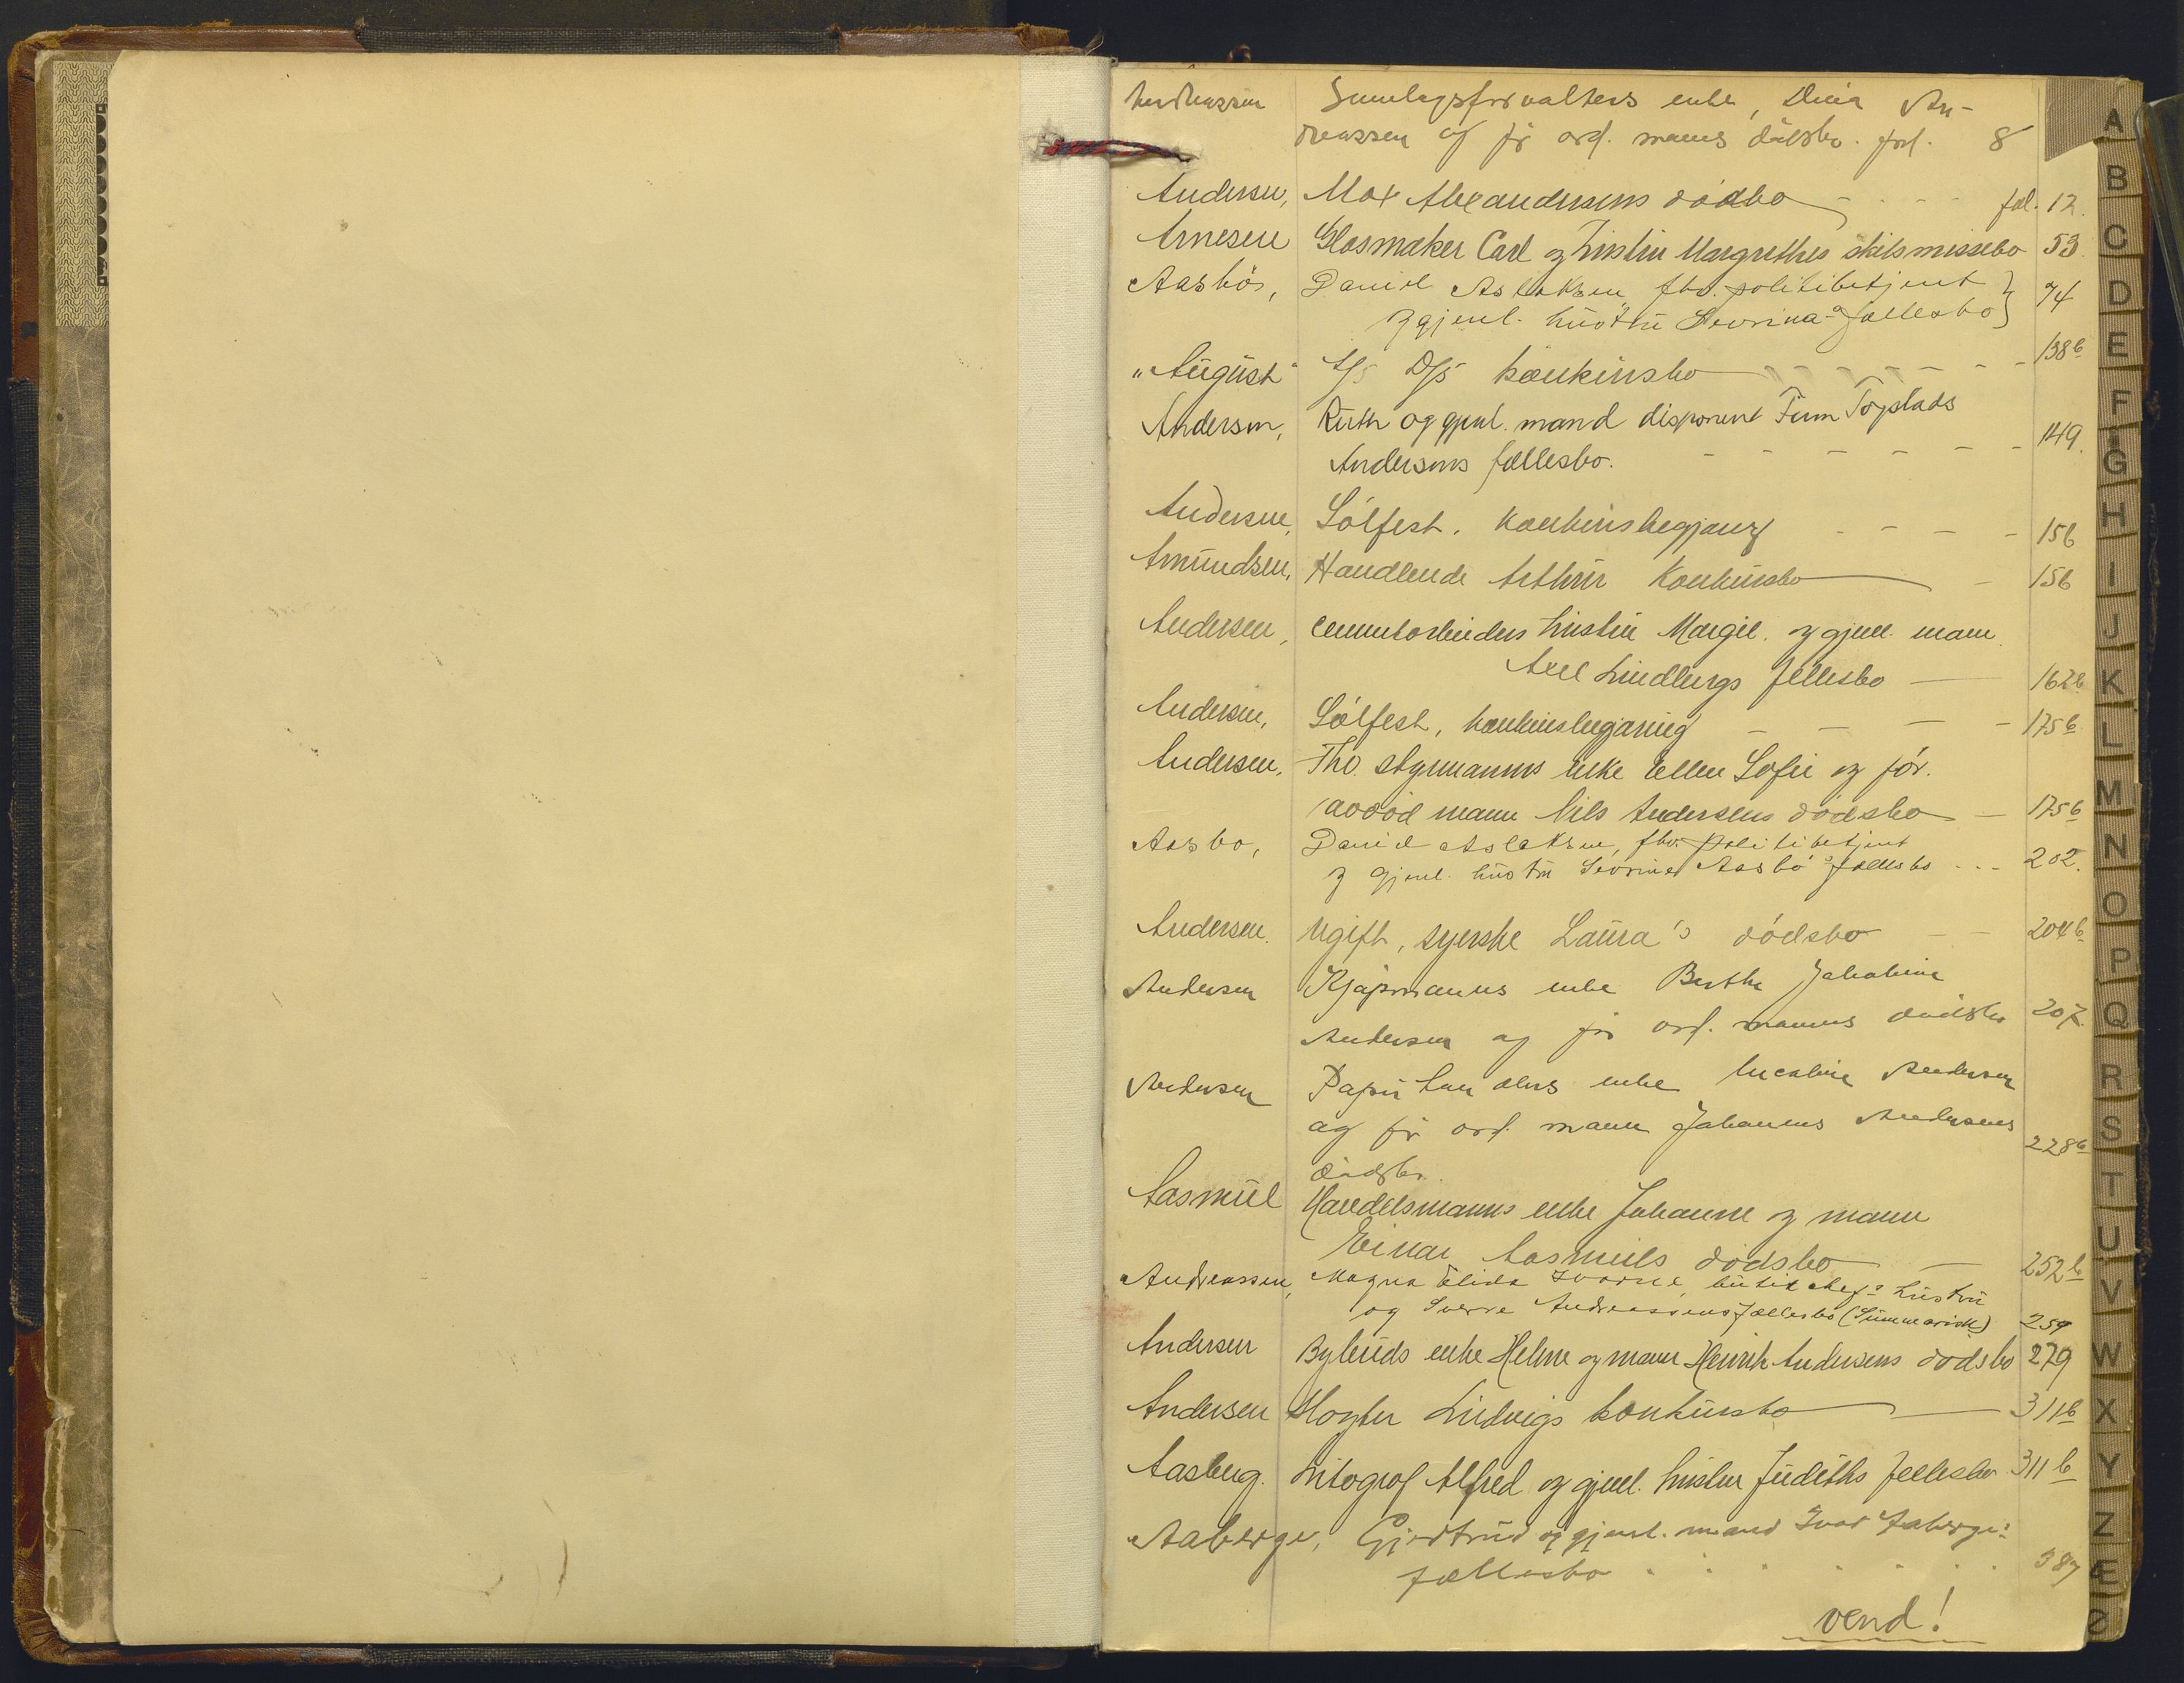 Andreassen Samlagsforvalters enke, An-
dreassen og før avd. manns dødsbo. fol. 8
Andersen, Max Alexandersens dødbo fol. 12.
Arnesen Glasmaker Carl og hustru Margrethes skilsmissebo 53
Aasbös, Daniel Aslaksen, fhv. politibetjent
og gjenl. hustru Sevrina's fællesbo } 74
"August" A/S D/S konkursbo - - 138b
Andersen, Ruth og gjenl. mand disponent Finn Topstads
Andersens fællesbo. - - - - - - 149.
Andersen, Sólfest. konkursbegjæng - - - - 156
Amundsen, Handlende Arthur Konkursbo - 156
Andersen, cementarbeiders hustru Margit. og gjenl. mann
Axel Lindbergs fellesbo 162b
Andersen, Sólfest, konkursbegjæring - - - - 175b
Andersen, Fhv. styrmanns enke Ellen Sofie og før.
avdöd mann Nils Andersens dödsbo - 175b
Aasbo, Daniel Aslaksen, fhv. politibetjent
og gjenl. hustru Sevrine Aasbö's fællesbo - - - 202.
Andersen. Ugift, syerske Laura's dödsbo - - 204b
Andersen Kjøpmanns enke Berthe Jakobine
Andersen og før avd. manns dødsbo 207.
Andersen Papirhandlers enke Andersen
og før avd. mann Johannes Andersens 228b
dødsbo.
Aasmul Handelsmanns enke Johanne og mann
Einar Aasmuls dödsbo - 252b
Andreassen, Magna Elida butikchefs hustru
og Sverre Andreassens fællesbo (Summarisk) 259
Andersen Bybuds enke Helene og mann Henrik Andersens dödsbo 279
Andersen Ludvigs konkursbo 311b
Aasberg. Litograf Alfred og gjenl. hustru Judiths fellesbo 311b
Aaberge, Gjertrud og gjenl. mand Ivar Aaberge's
fællesbo . . . . . . 387
vend!
A
B
C
D
E
F
G
H
I
J
K
L
M
N
O
P
Q
R
S
T
U
V
W
X
Y
Z
Æ
Ø